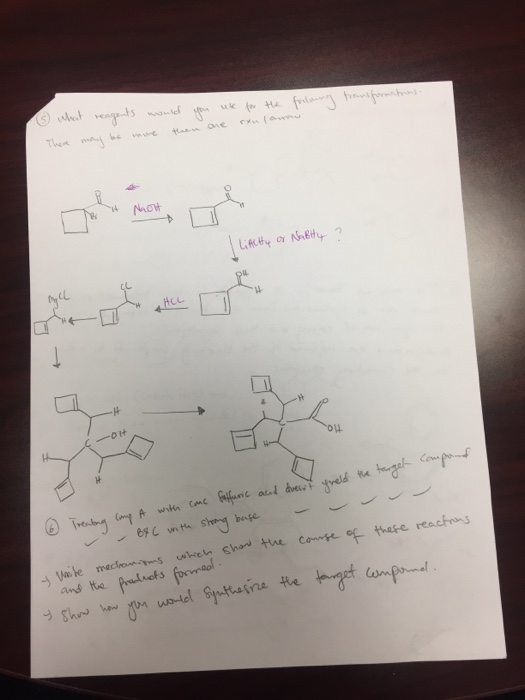 ⑤ What reagents would you use for the following transformations.
There may be more than one rxn/arrow
O
O
H
Br
NaOH
H
LiAlH4 or NaBH4 ?
OH
H
HCL
CL
H
MgCL
H
H
C
OH
H
H
H
C
O
OH
H
⑥ Treating cmp A with conc sulfuric acid doesn't yield the target compound
B&C with strong base
→ Write mechanisms which show the course of these reactions
and the products formed.
→ Show how you would synthesize the target compound.